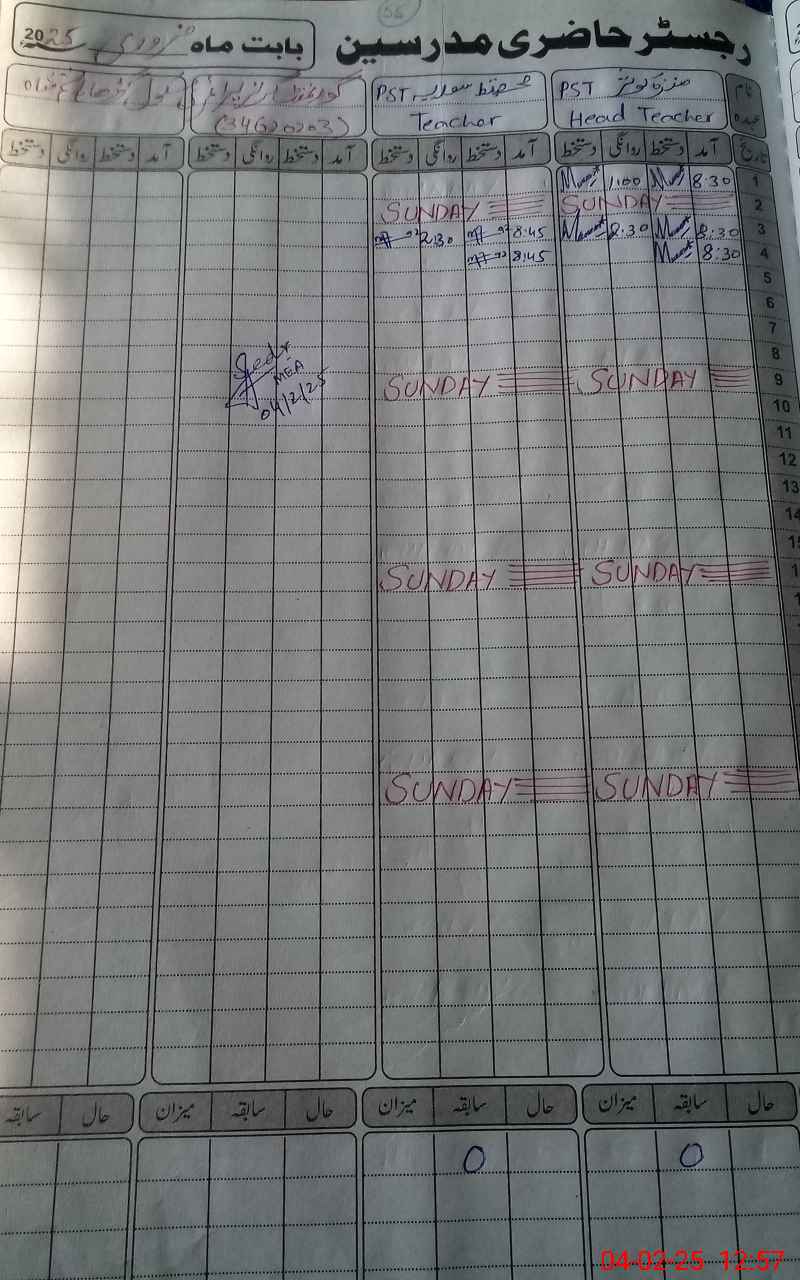 رجسٹر حاضری مدرسین بابت ماہ فروری 2025
نام PST PST گورنمنٹ گرلز پرائمری
عہدہ Head Teacher Teacher (34620203)
تاریخ آمد دستخط روانگی دستخط آمد دستخط روانگی دستخط آمد دستخط روانگی دستخط آمد دستخط روانگی دستخط
1 8:30 1:00
2 SUNDAY SUNDAY
3 8:30 2:30 8:45 2:30
4 8:30 8:45
5
6
7
8
9 SUNDAY SUNDAY
MEA
04/2/25
10
11
12
13
14
15
SUNDAY SUNDAY
SUNDAY SUNDAY
حال سابقہ میزان حال سابقہ میزان حال سابقہ میزان حال سابقہ
0 0
04-02-25 12:57